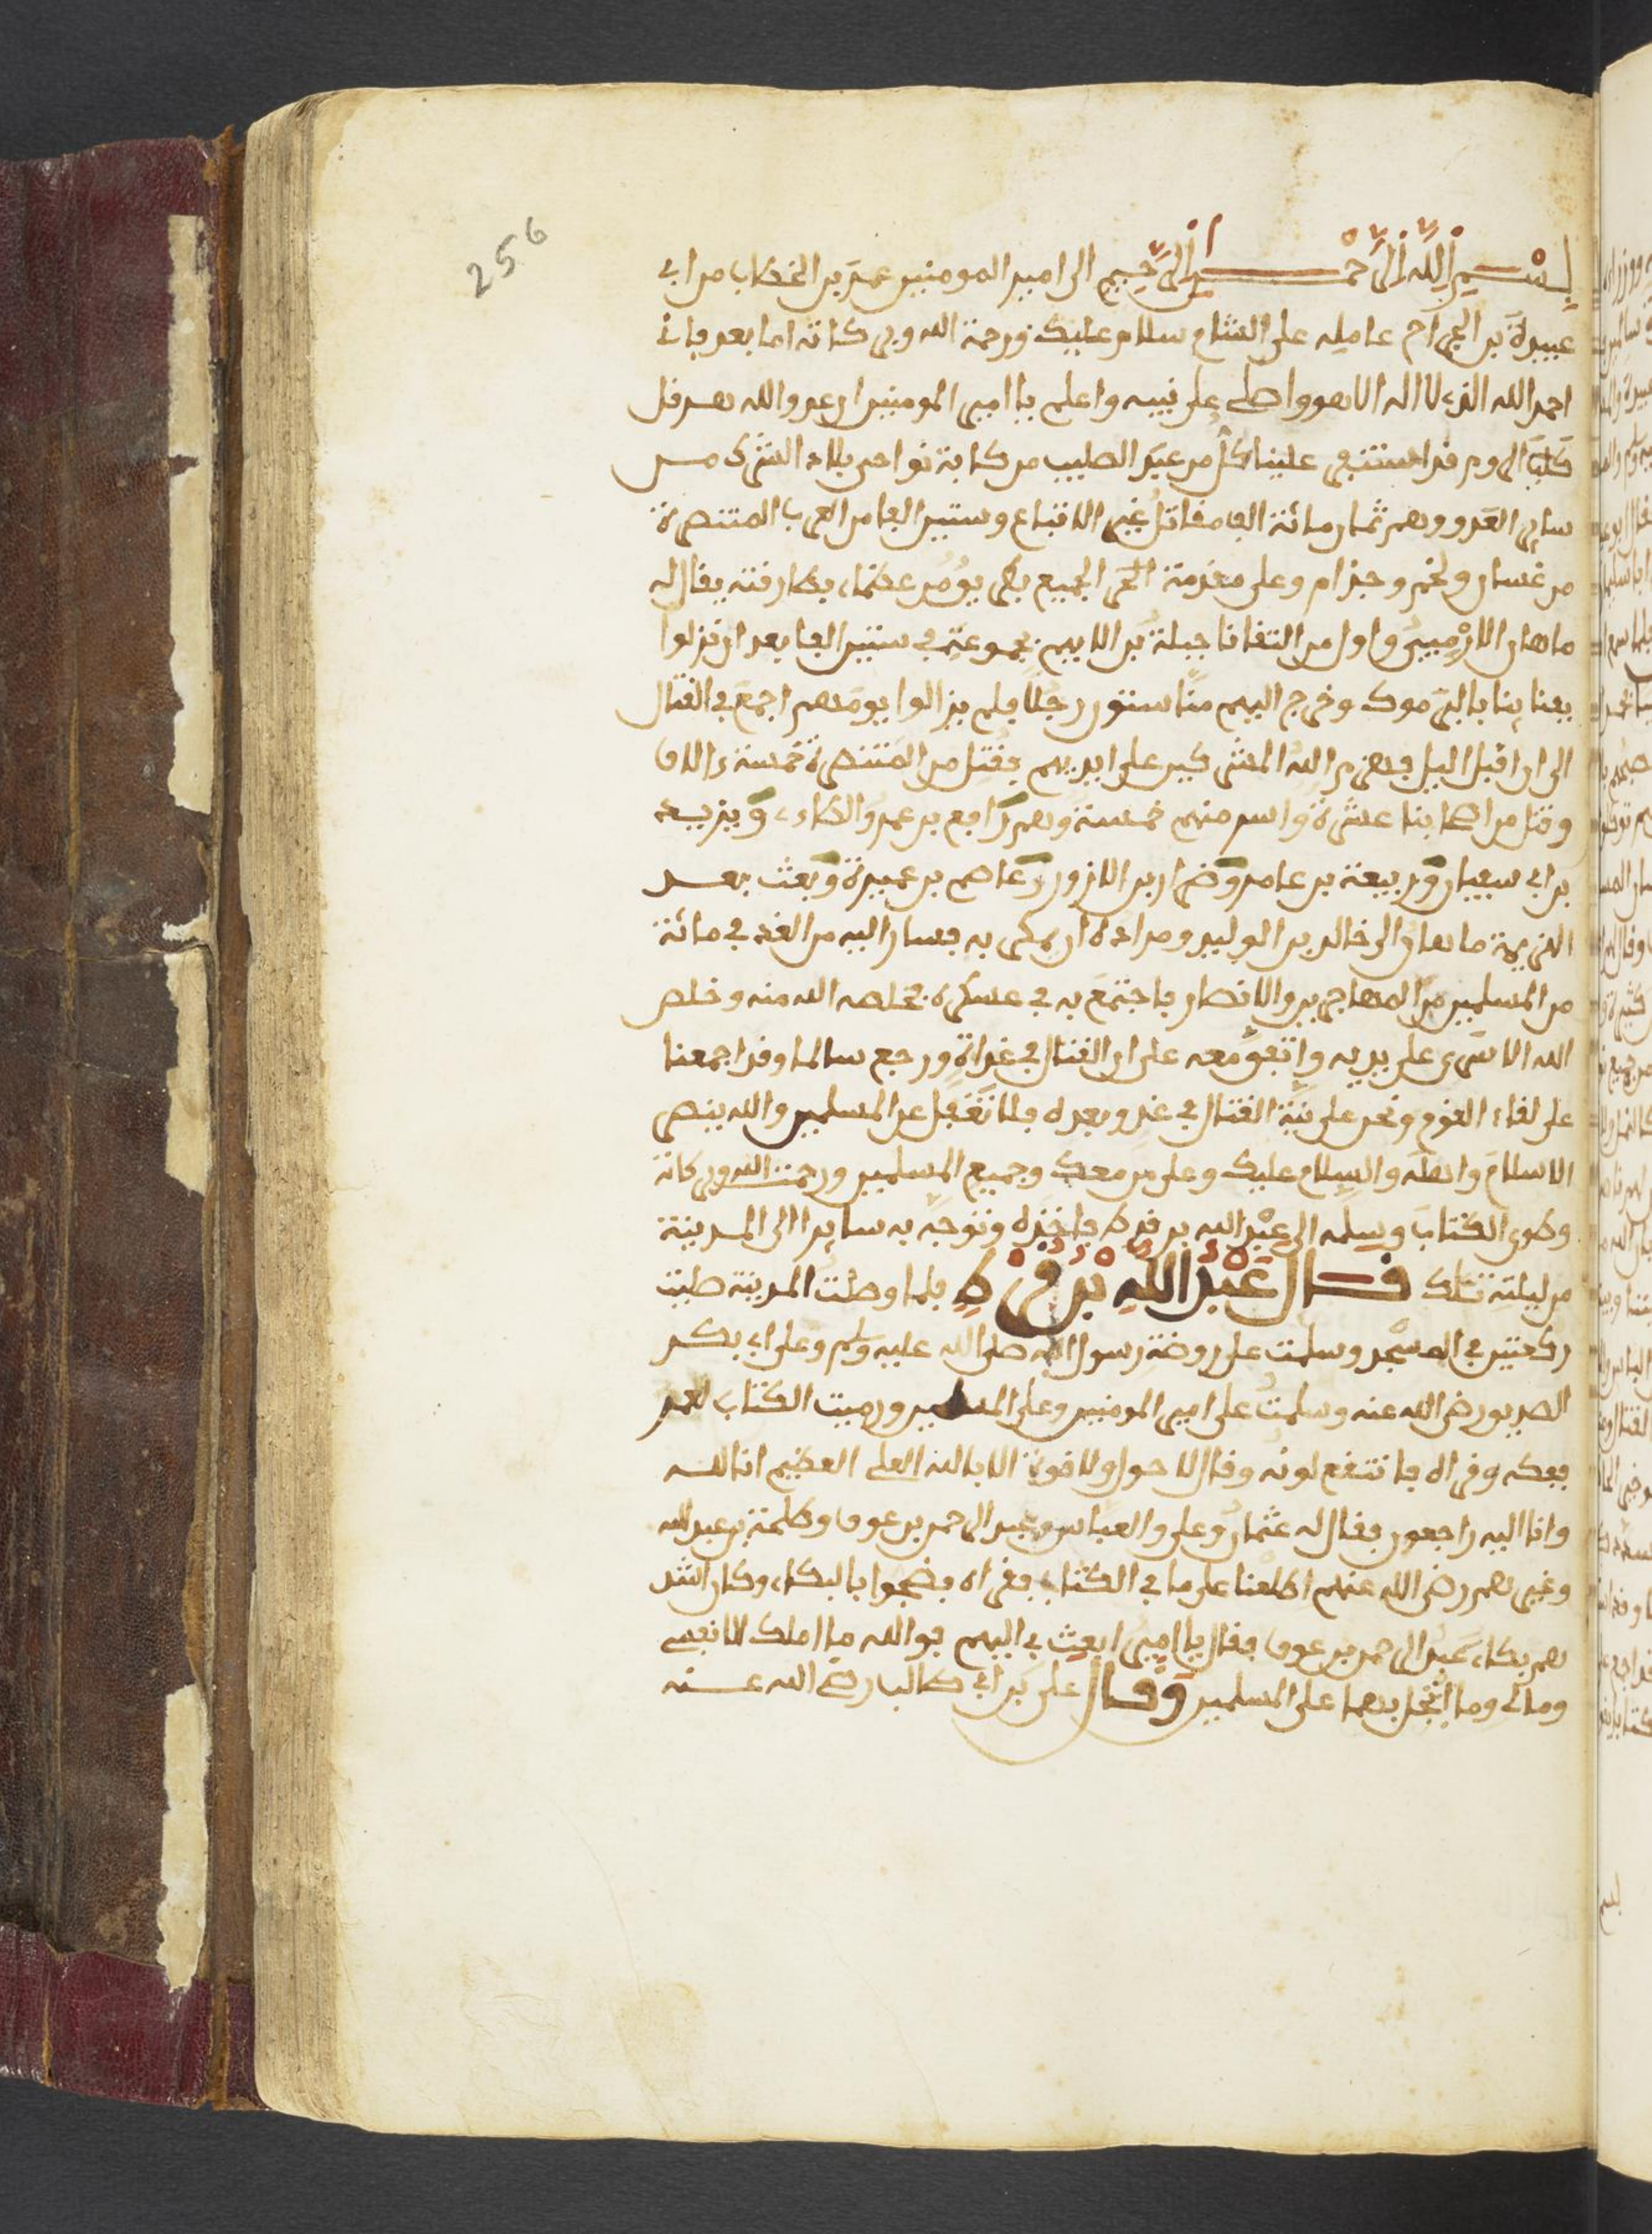 256
بِسْمِ اللَّهِ الرَّحْمَنِ الرَّحِيمِ الى امير المومنين عمر بن الخطاب من ابي
عبيدة بن الجراح عامله على الشام سلام عليك ورحمة الله وبركاته اما بعد فانى
احمد الله الذى لا اله الا هو واصلى على نبيه واعلم يا امير المومنين ان عدو الله هرقل
كلب الروم قد استنجر علينا كل من عبد الصليب من كافة نواحى بلاد الشرك من
ساير العدو وهم ثمان مائة الف مقاتل غير الاتباع وستين الفا من العرب المتنصرة
من غسان ولخم وجذام وعلى مقدمة الجميع بطريق عظماء بطارقته يقال له
ماهان الارميني واول من التقانا جبلة بن الايهم فى ستين الفا بعد ان نزلوا
بفنائنا باليرموك وخرج اليهم منا ستون رجلا فلم يزالوا يومهم اجمع فى القتال
الى ان اقبل اليل فهزم الله المشركين على ايديهم فقتل من المتنصرة خمسة ءالاف
وقتل من اصحابنا عشرة واسر منهم خمسة وهم رافع بن عمرو الطاءى ويزيد
بن ابى سفيان وربيعة بن عامر وضرار بن الازور وعاصم بن عميرة وبعث بعد
الهزيمة ماهان الى خالد بن الوليد ومراده ان يمكر به فسار اليه من الغد فى مائة
من المسلمين من المهاجرين والانصار فاجتمع به فى عسكره فخلصه الله منه وخلص
الله الاسرى على يديه واتفق معه على ان القتال فى غداة ورجع سالما وقد اجمعنا
على لقاء القوم ونحن على نية القتال فى غد وبعده فلا تغفل عن المسلمين والله ينصر
الاسلام واهله والسلام عليك وعلى من معك وجميع المسلمين ورحمت الله وبركاته
وطوى الكتاب وسلمه الى عبد الله بن قرط فاخذه وتوجه به سائرا الى المدينة
من ليلته تلك قال عَبْدُ اللهِ بْنُ قُرْطٍ فلما وصلت المدينة صليت
ركعتين فى المسجد وسلمت على روضة رسول الله صلى الله عليه وسلم وعلى ابى بكر
الصديق رضى الله عنه وسلمت على امير المومنين وعلى المسلمين ورميت الكتاب لعمر
ففكه وقراه فانتقع لونه وقال لا حول ولا قوة الا بالله العلى العظيم انا لله
وانا اليه راجعون فقال له عثمان وعلى والعباس وعبد الرحمن بن عوف وطلحة بن عبد الله
وغيرهم رضى الله عنهم اطلعنا على ما فى الكتاب فقراه فضجوا بالبكاء وكان اشد
هم بكاء عبد الرحمن بن عوف فقال يا امير ابعث بى اليهم فوالله ما املك الا نفسى
ومالى وما ابخل بهما على المسلمين وَقال على بن ابى طالب رضى الله عنه